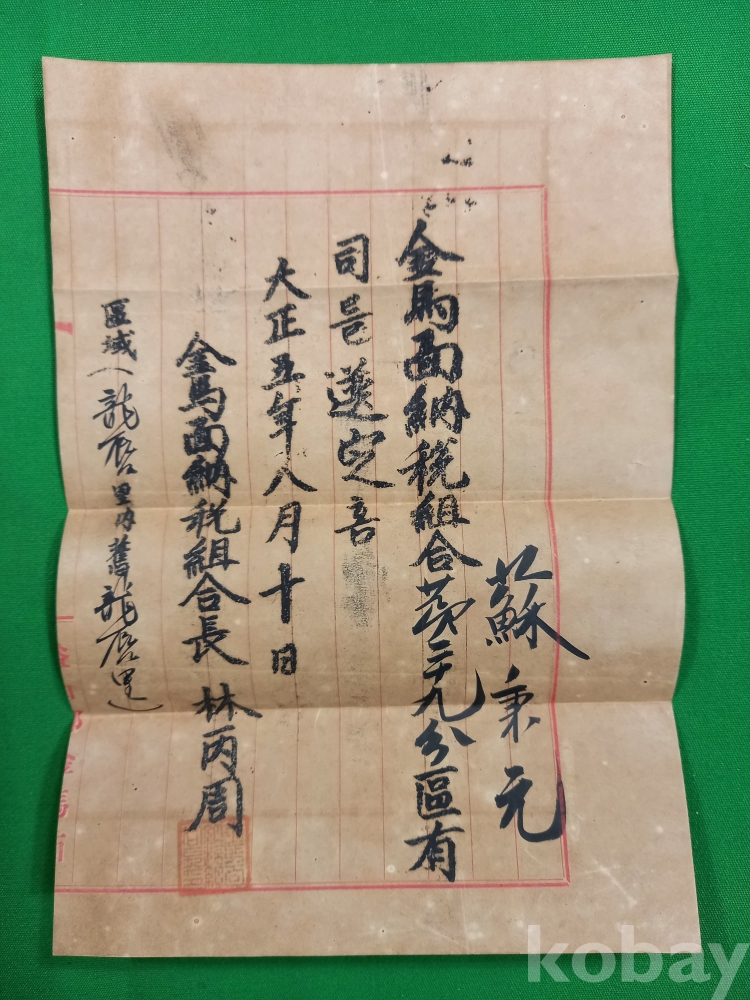 蘇秉元
金馬面納稅組合第二十九分區有
司로選定喜
大正五年八月十日
金馬面納稅組合長 林丙周
區域(龍唇里內舊龍唇里)
kobay